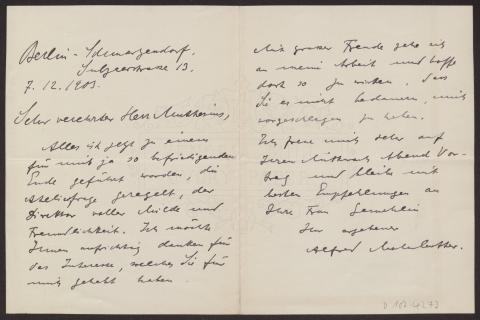 Berlin-Schmargendorf.
Sulzaerstrasse 13.
7.12.1903.
Sehr verehrter Herr Muthesius,
Alles ist jetzt zu einem
für mich ja so befriedigenden
Ende geführt worden, die
Atelierfrage geregelt, der
Direktor voller Milde und
Freundlichkeit. Ich möchte
Ihnen aufrichtig danken für
das Interesse, welches Sie für
mich gehabt haben.
Mit grosser Freude gehe ich
an meine Arbeit und hoffe
dort so zu wirken, dass
Sie es nicht bedauern, mich
vorgeschlagen zu haben.
Ich freue mich sehr auf
Ihren Mittwoch Abend Vor-
trag und bleibe mit
besten Empfehlungen an
Ihre Frau Gemahlin
Ihr ergebener
Alfred Mohrbutter.
D 102-4273